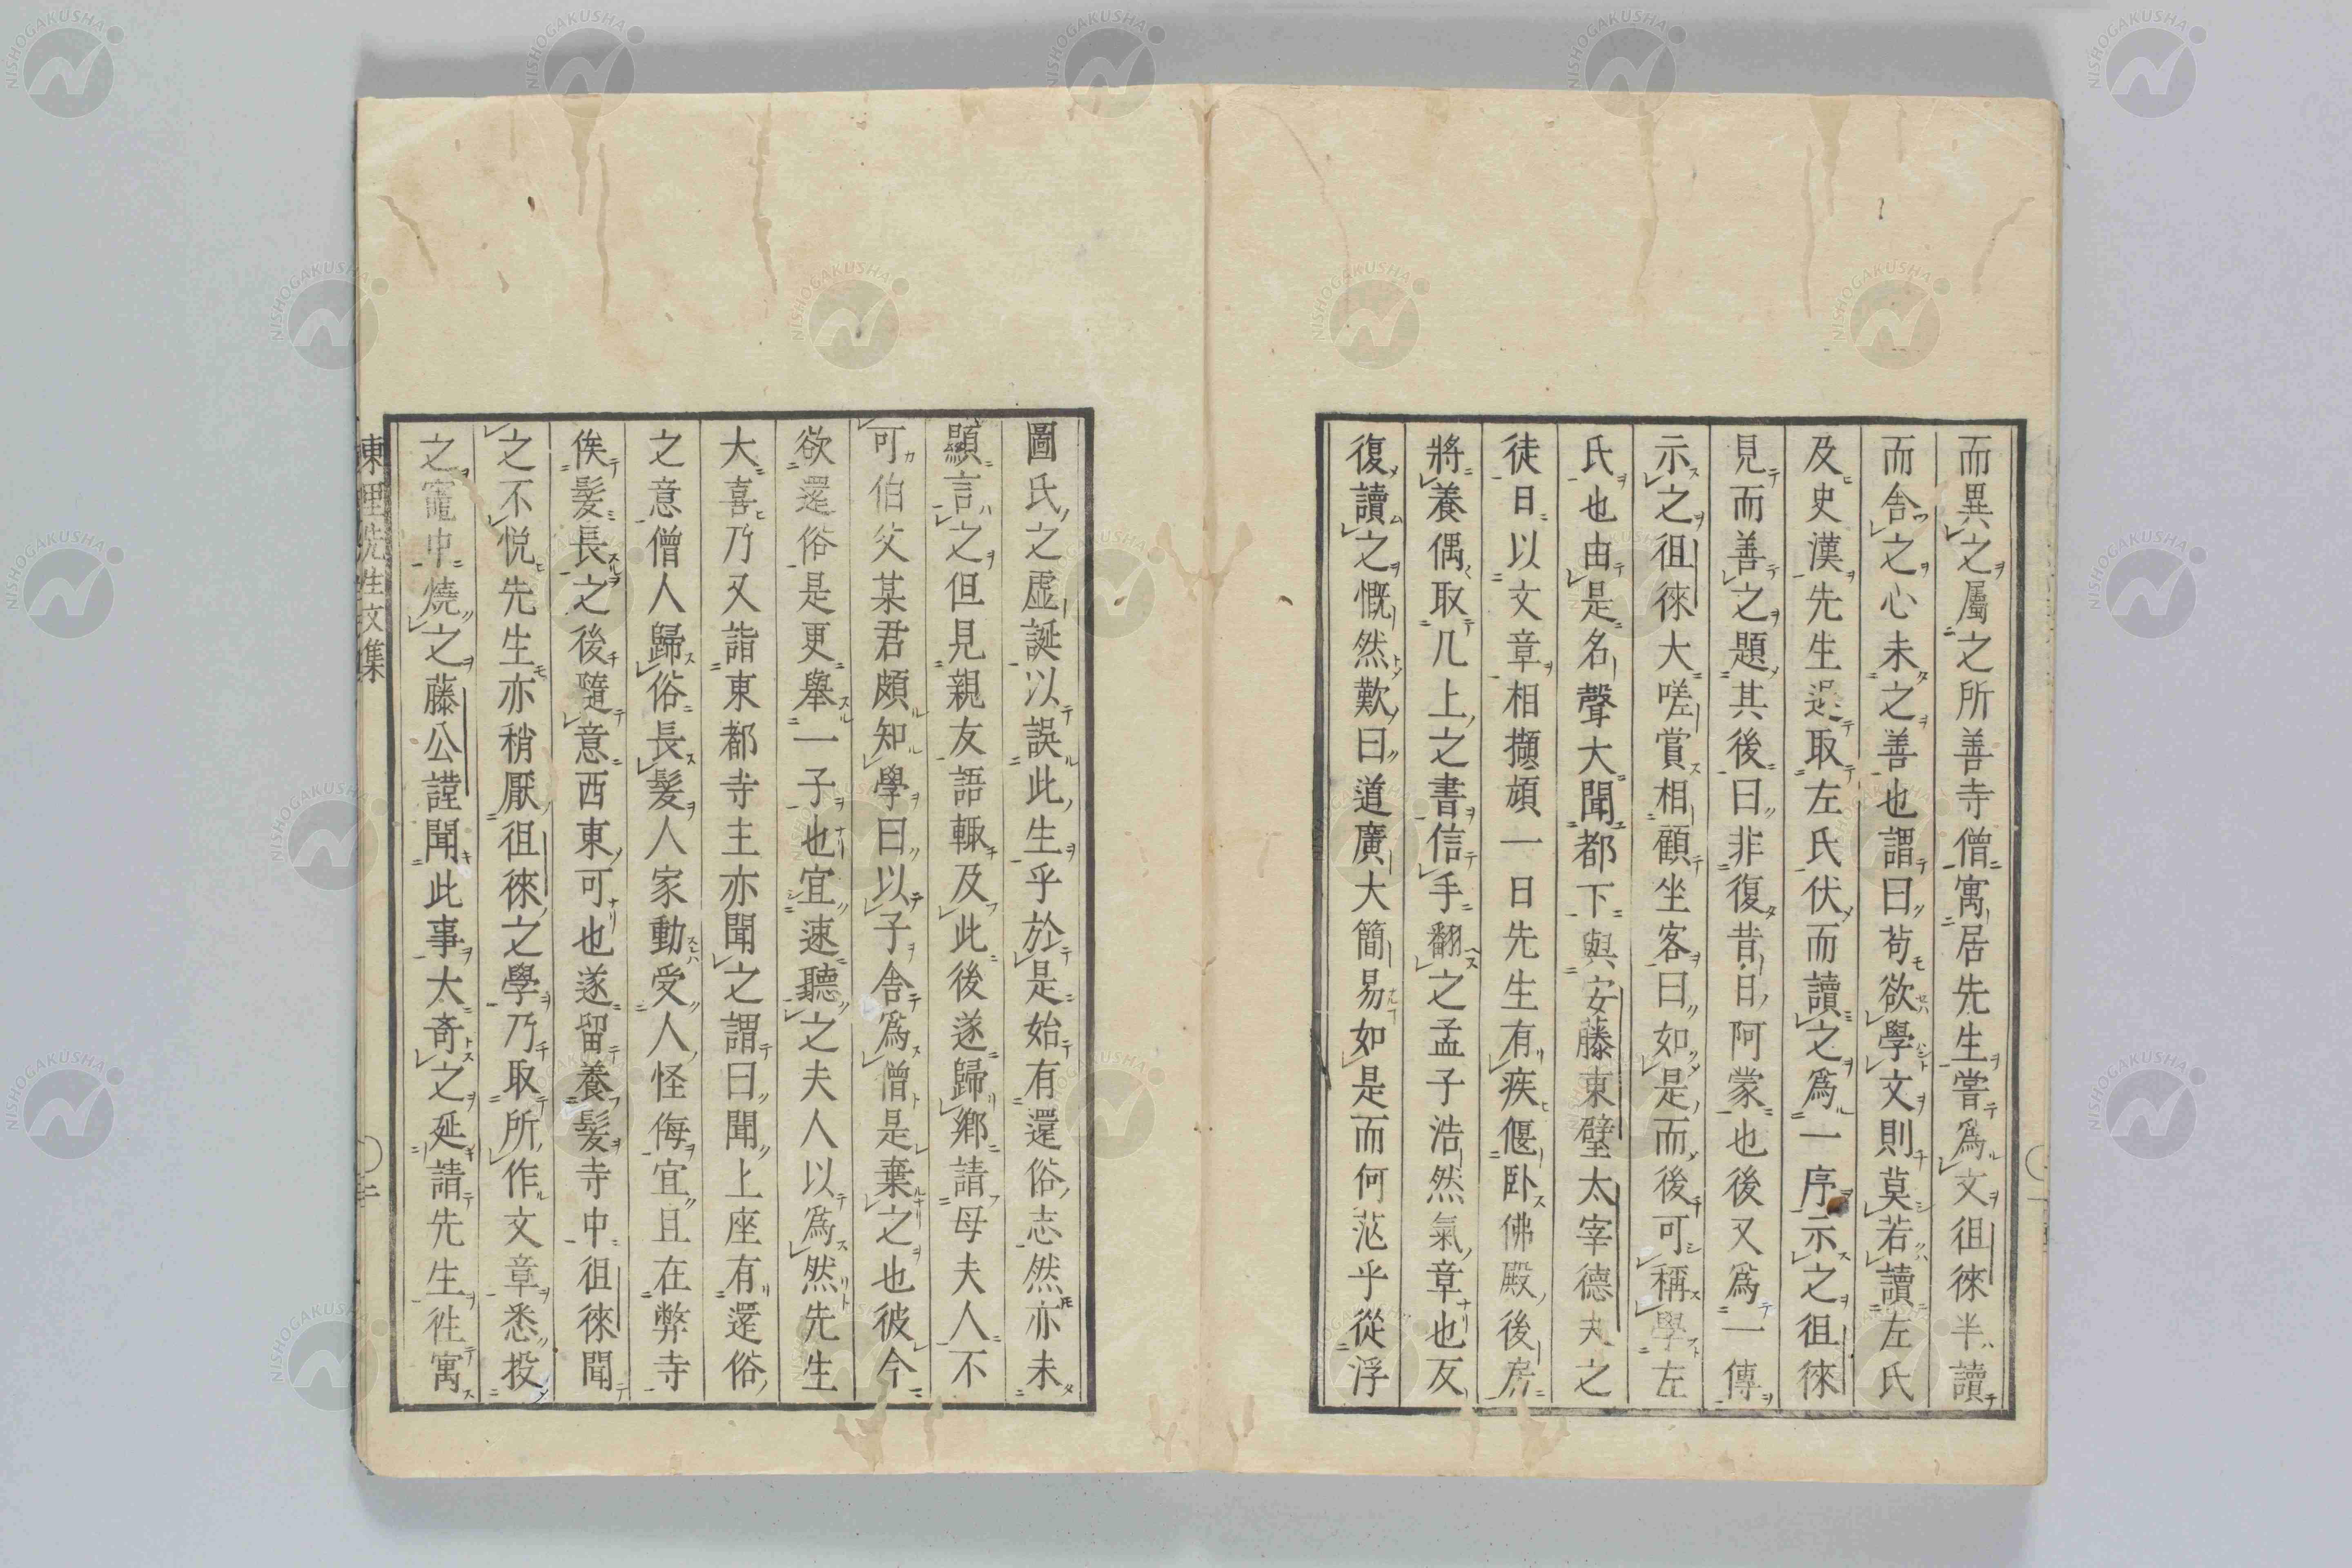 而異之屬之所善寺僧寓居先生嘗爲文徂徠半讀
而舎之心未之善也謂曰苟欲學文則莫若讀左氏
及史漢先生退取左氏伏而讀之爲一序示之徂徠
見而善之題其後曰非復昔日阿蒙也後又爲一傳
示之徂徠大嗟賞相顧坐客曰如是而後可稱學左
氏也由是名聲大聞都下與安藤東壁太宰德夫之
徒日以文章相擷頏一日先生有疾偃卧佛殿後房
將養偶取几上之書信手翻之孟子浩然氣章也反
復讀之慨然歎曰道廣大簡易如是而何茫乎從浮
圖氏之虛誕以誤此生乎於是始有還俗志然亦未
顯言之但見親友語輙及此後遂歸鄕請母夫人不
可伯父某君頗知學曰以子舎爲僧是棄之也彼今
欲還俗是更舉一子也宜速聽之夫人以爲然先生
大喜乃又詣東都寺主亦聞之謂曰聞上座有還俗
之意僧人歸俗長髮人家動受人怪侮宜且在弊寺
俟髮長之後隨意西東可也遂留養髮寺中徂徠聞
之不悦先生亦稍厭徂徠之學乃取所作文章悉投
之竈中燒之藤公謹聞此事大竒之延請先生徃寓
東埋先生文集